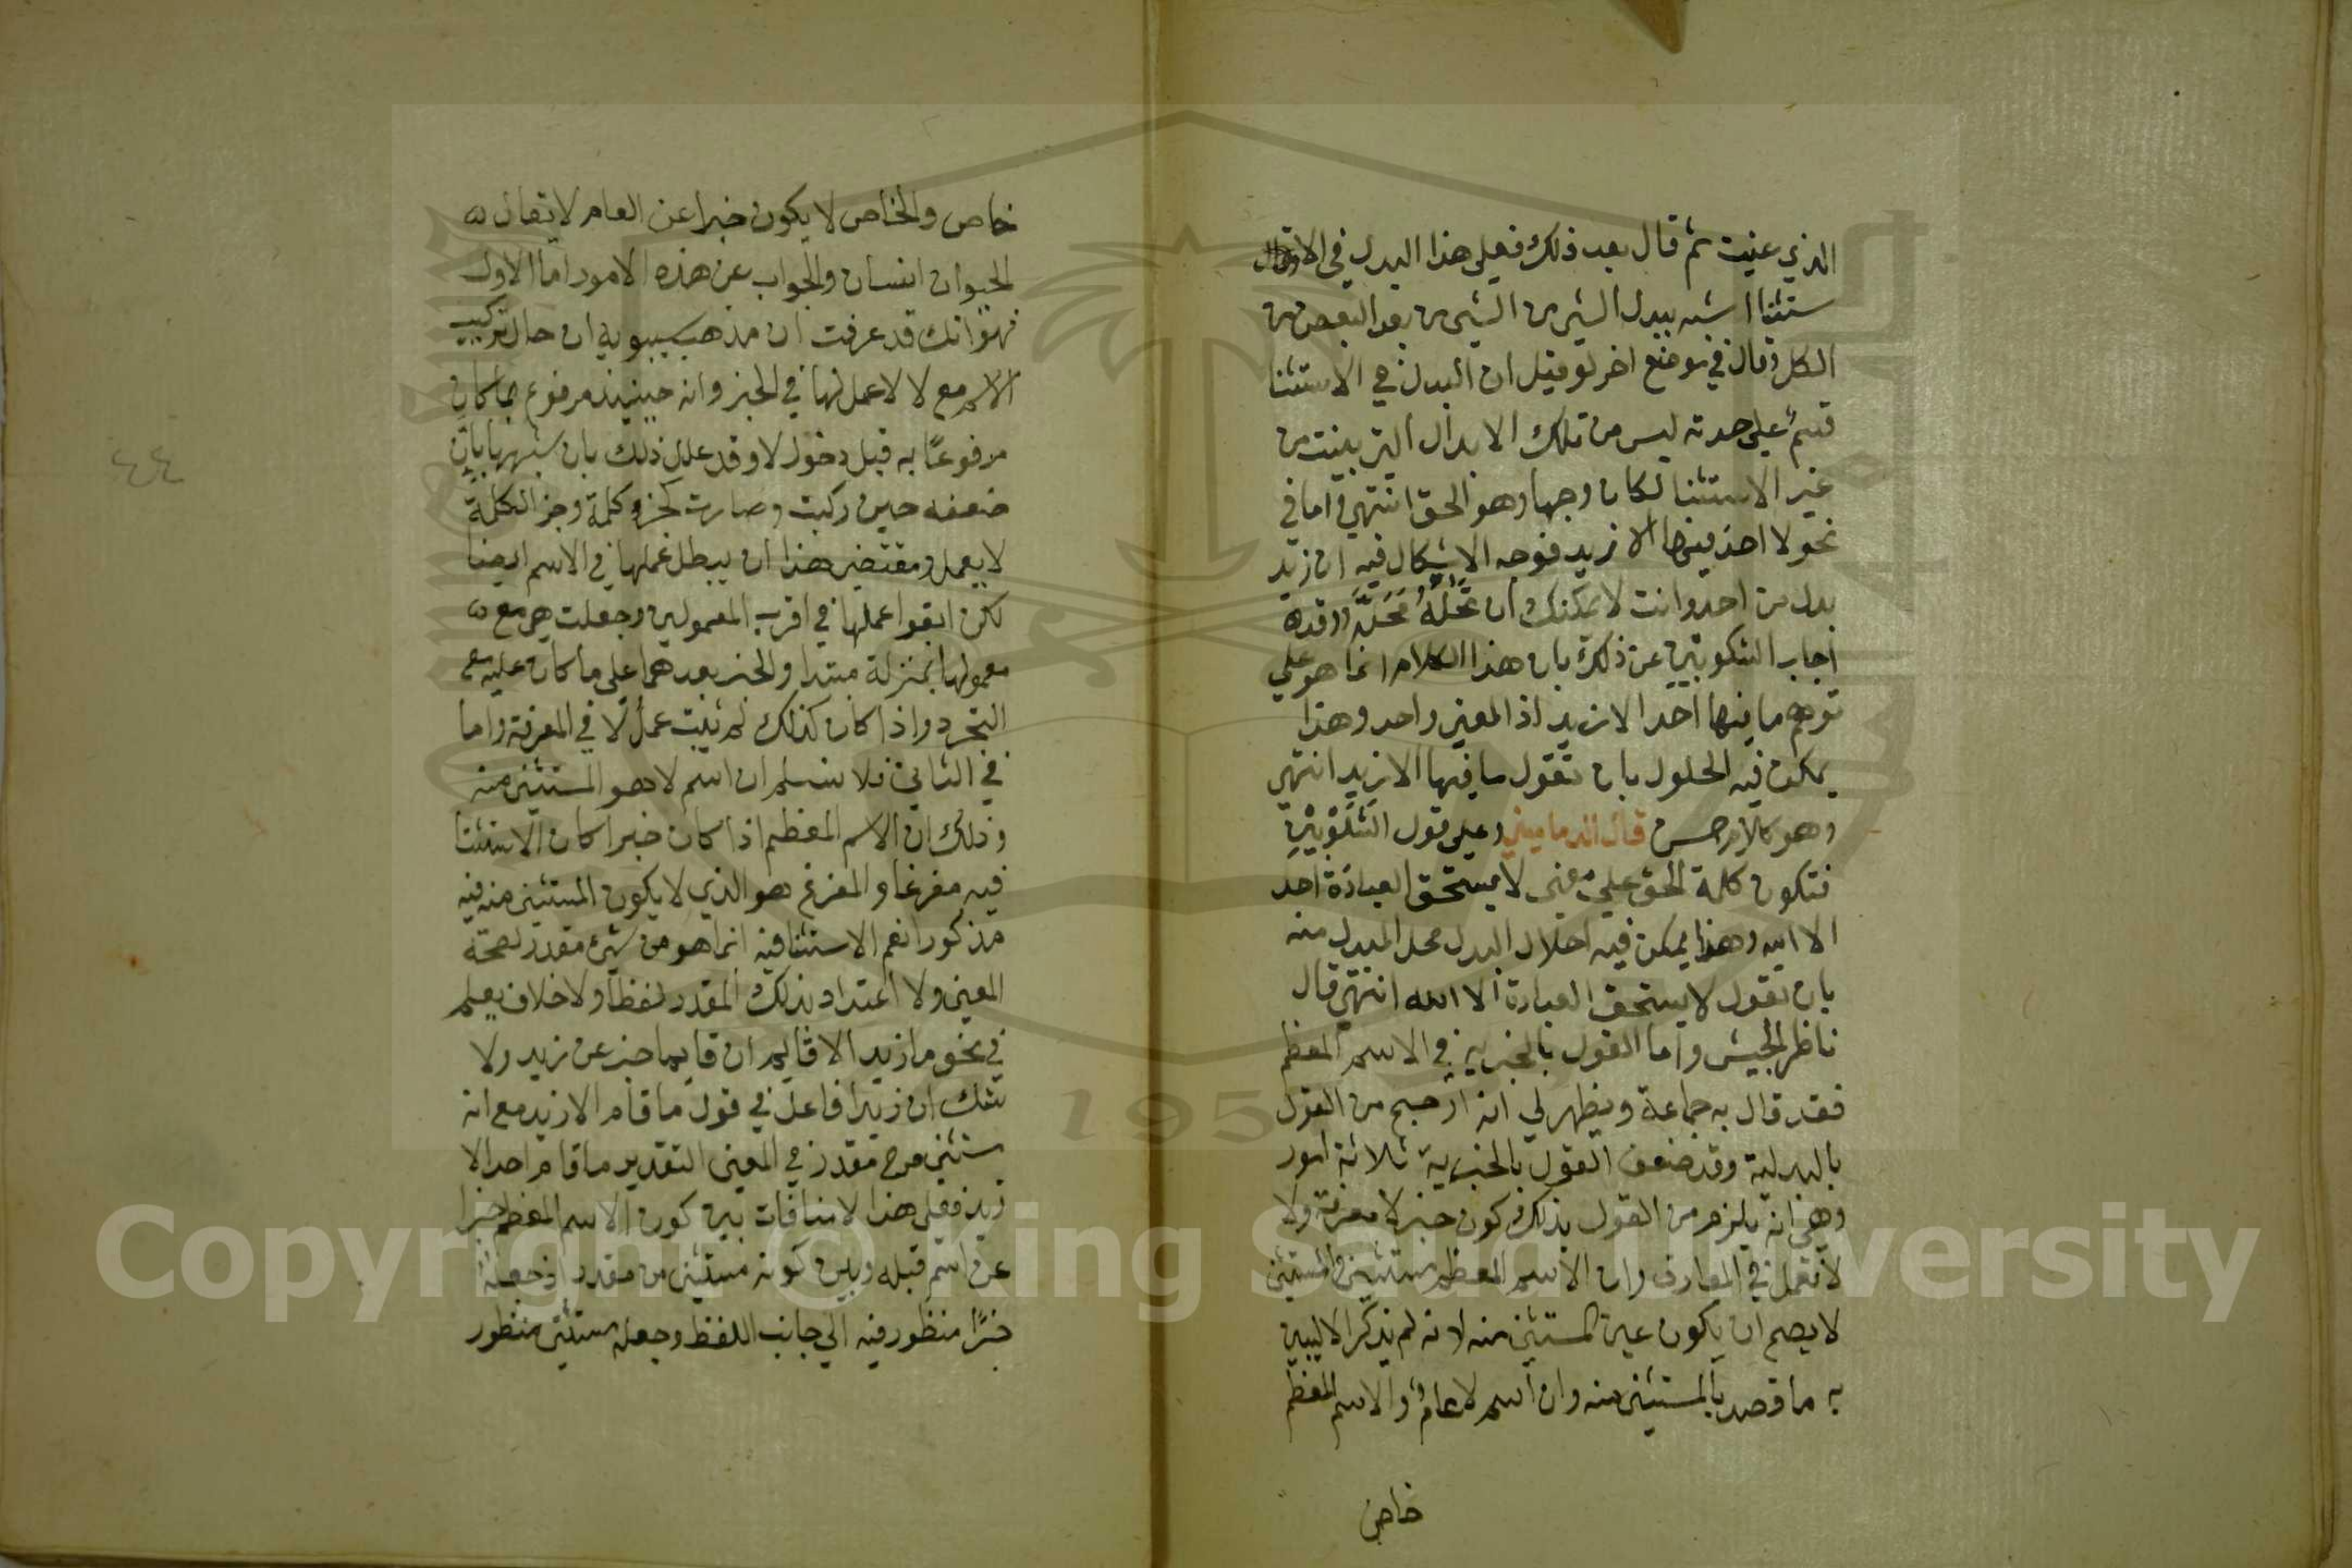 الذي عنيت ثم قال بعد ذلك فعلى هذا البدل في الا
ستثنا اشبه ببدل الشي من الشي من بدل البعض من
الكل وقال في موضع اخر لو قيل ان البدل في الاستثنا
قسم على حدته ليس من تلك الابدال التي بينت من
غير الاستثنا لكان وجها وهو الحق انتهى واما في
نحو لا احد فيها الا زيد فوجه الاشكال فيه ان زيد
بدل من احد وانت لا يمكنك ان تحله محله وقد
اجاب الشلوبين عن ذلك بان هذا الكلام انما هو على
توهم ما فيها احد الا زيد اذ المعنى واحد وهذا
يمكن فيه الحلول بان تقول ما فيها الا زيد انتهى
وهو كلام حسن قال الدماميني وعلى قول الشلوبين
فتكون كلمة الحق على معنى لا يستحق العبادة احد
الا الله وهذا يمكن فيه احلال البدل محل المبدل منه
بان تقول لا يستحق العبادة الا الله انتهى قال
ناظر الجيش واما القول بالخبرية في الاسم المعظم
فقد قال به جماعة ويظهر لي انه ارجح من القول
بالبدلية وقد ضعف القول بالخبرية ثلاثة امور
وهي انه يلزم من القول بذلك كون خبر لا معرفة ولا
لا تعمل في المعارف وان الاسم المعظم مستثنى والمستثنى
لا يصح ان يكون عين المستثنى منه لانه لم يذكر الا ليبين
به ما قصد بالمستثنى منه وان اسم لا عام والاسم المعظم
خاص
خاص والخاص لا يكون خبرا عن العام لا يقال
الحيوان انسان والجواب عن هذه الامور اما الاول
فهو انك قد عرفت ان مذهب سيبويه ان حال تركيب
الاسم مع لا لا عمل لها في الخبر وانه حينيذ مرفوع بما كان
مرفوعا به قبل دخول لا وقد علل ذلك بان شبهها بان
ضعفه حين ركبت وصارت كجزو كلمة وجز الكلمة
لا يعمل ومقتضى هذا ان يبطل عملها في الاسم ايضا
لكن ابقوا عملها في اقرب المعمولين وجعلت هي مع
معمولها بمنزلة مبتدا والخبر بعدهما على ما كان عليه مع
التجرد واذا كان كذلك لم يثبت عمل لا في المعرفة واما
في الثاني فلا نسلم ان اسم لا هو المستثنى منه
وذلك ان الاسم المعظم اذا كان خبرا كان الاستثنا
فيه مفرغا والمفرغ هو الذي لا يكون المستثنى منه فيه
مذكورا نعم الاستثنا فيه انما هو من شي مقدر لصحة
المعنى ولا اعتداد بذلك المقدر لفظا ولا خلاف يعلم
في نحو ما زيد الا قايم ان قايما خبر عن زيد ولا
شك ان زيدا فاعل في قول ما قام الا زيد مع انه
مستثنى من مقدر في المعنى التقدير ما قام احد الا
زيد فعلى هذا لا منافات بين كون الاسم المعظم خبرا
عن اسم قبله وبين كونه مستثنى من مقدر اذ جعله
خبرا منظور فيه الى جانب اللفظ وجعله مستثنى منظور
٤٤
1957
Copyright © King Saud University